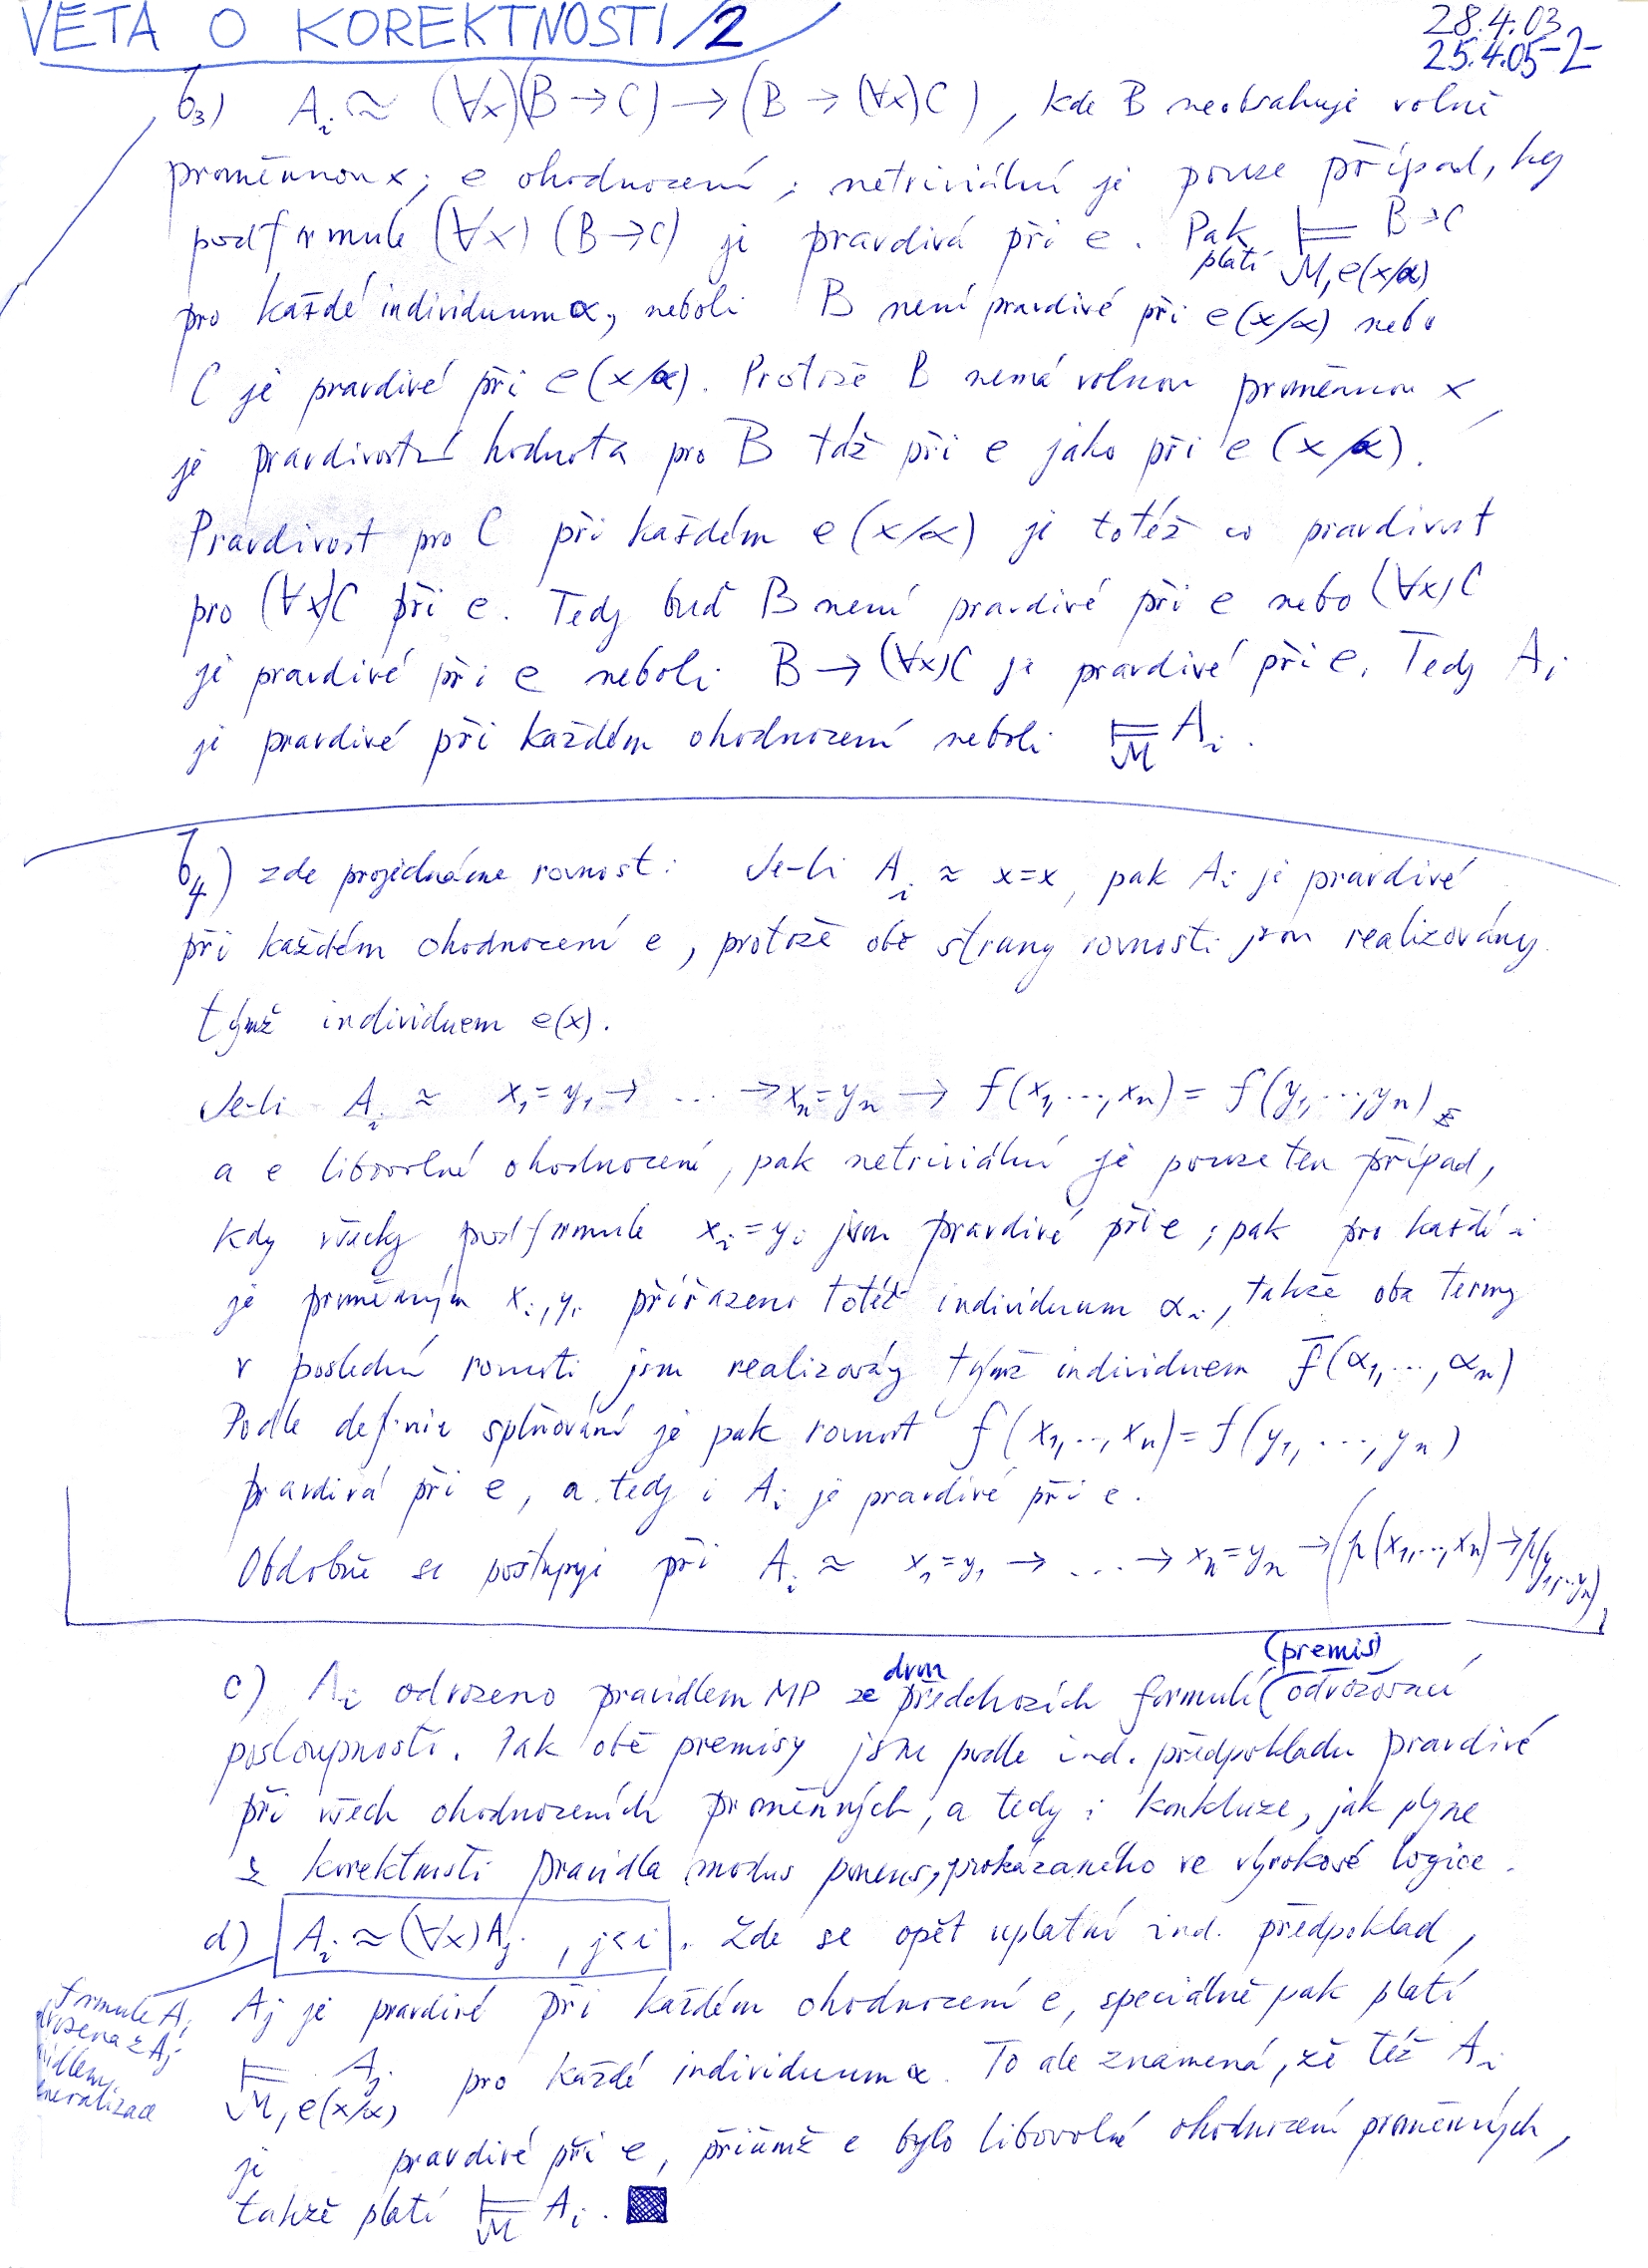 VĚTA O KOREKTNOSTI/2
28.4.03
25.4.05 -2-
b3) Ai ≈ (∀x)(B → C) → (B → (∀x)C), kde B neobsahuje volně
proměnnou x; e ohodnocení; netriviální je pouze případ, kdy
podformule (∀x)(B→C) je pravdivá při e. Pak platí ⊨ M,e(x/α) B→C
pro každé individuum α, neboli B není pravdivé při e(x/α) nebo
C je pravdivé při e(x/α). Protože B nemá volnou proměnnou x,
je pravdivostní hodnota pro B táž při e jako při e(x/α).
Pravdivost pro C při každém e(x/α) je totéž co pravdivost
pro (∀x)C při e. Tedy buď B není pravdivé při e nebo (∀x)C
je pravdivé při e neboli B → (∀x)C je pravdivé při e. Tedy Ai
je pravdivé při každém ohodnocení neboli ⊨M Ai.
b4) zde projednáme rovnost: Je-li Ai ≈ x=x, pak Ai je pravdivé
při každém ohodnocení e, protože obě strany rovnosti jsou realizovány
týmž individuem e(x).
Je-li Ai ≈ x1=y1 → ... → xn=yn → f(x1,...,xn) = f(y1,...,yn)
a e libovolné ohodnocení, pak netriviální je pouze ten případ,
kdy všechy podformule xi=yi jsou pravdivé při e; pak pro každé i
je proměnným xi, yi přiřazeno totéž individuum αi, takže oba termy
v poslední rovnosti jsou realizovány týmž individuem f̄(α1,...,αn)
Podle definice splňování je pak rovnost f(x1,..,xn)=f(y1,...,yn)
pravdivá při e, a tedy i Ai je pravdivé při e.
Obdobně se postupuje při Ai ≈ x1=y1 → ... → xn=yn → (p(x1,..,xn) → p(y1,..yn)).
c) Ai odvozeno pravidlem MP ze dvou předchozích formulí (premis) odvozovací
posloupnosti. Pak obě premisy jsou podle ind. předpokladu pravdivé
při všech ohodnoceních proměnných, a tedy i konkluze, jak plyne
z korektnosti pravidla modus ponens, prokázaného ve výrokové logice.
d) Ai ≈ (∀x)Aj, j<i. Zde se opět uplatní ind. předpoklad,
formule Ai
z Aj
Aj je pravdivé při každém ohodnocení e, speciálně pak platí
⊨ M,e(x/α) Aj pro každé individuum α. To ale znamená, že též Ai
je pravdivé při e, přičemž e bylo libovolné ohodnocení proměnných,
takže platí ⊨M Ai.